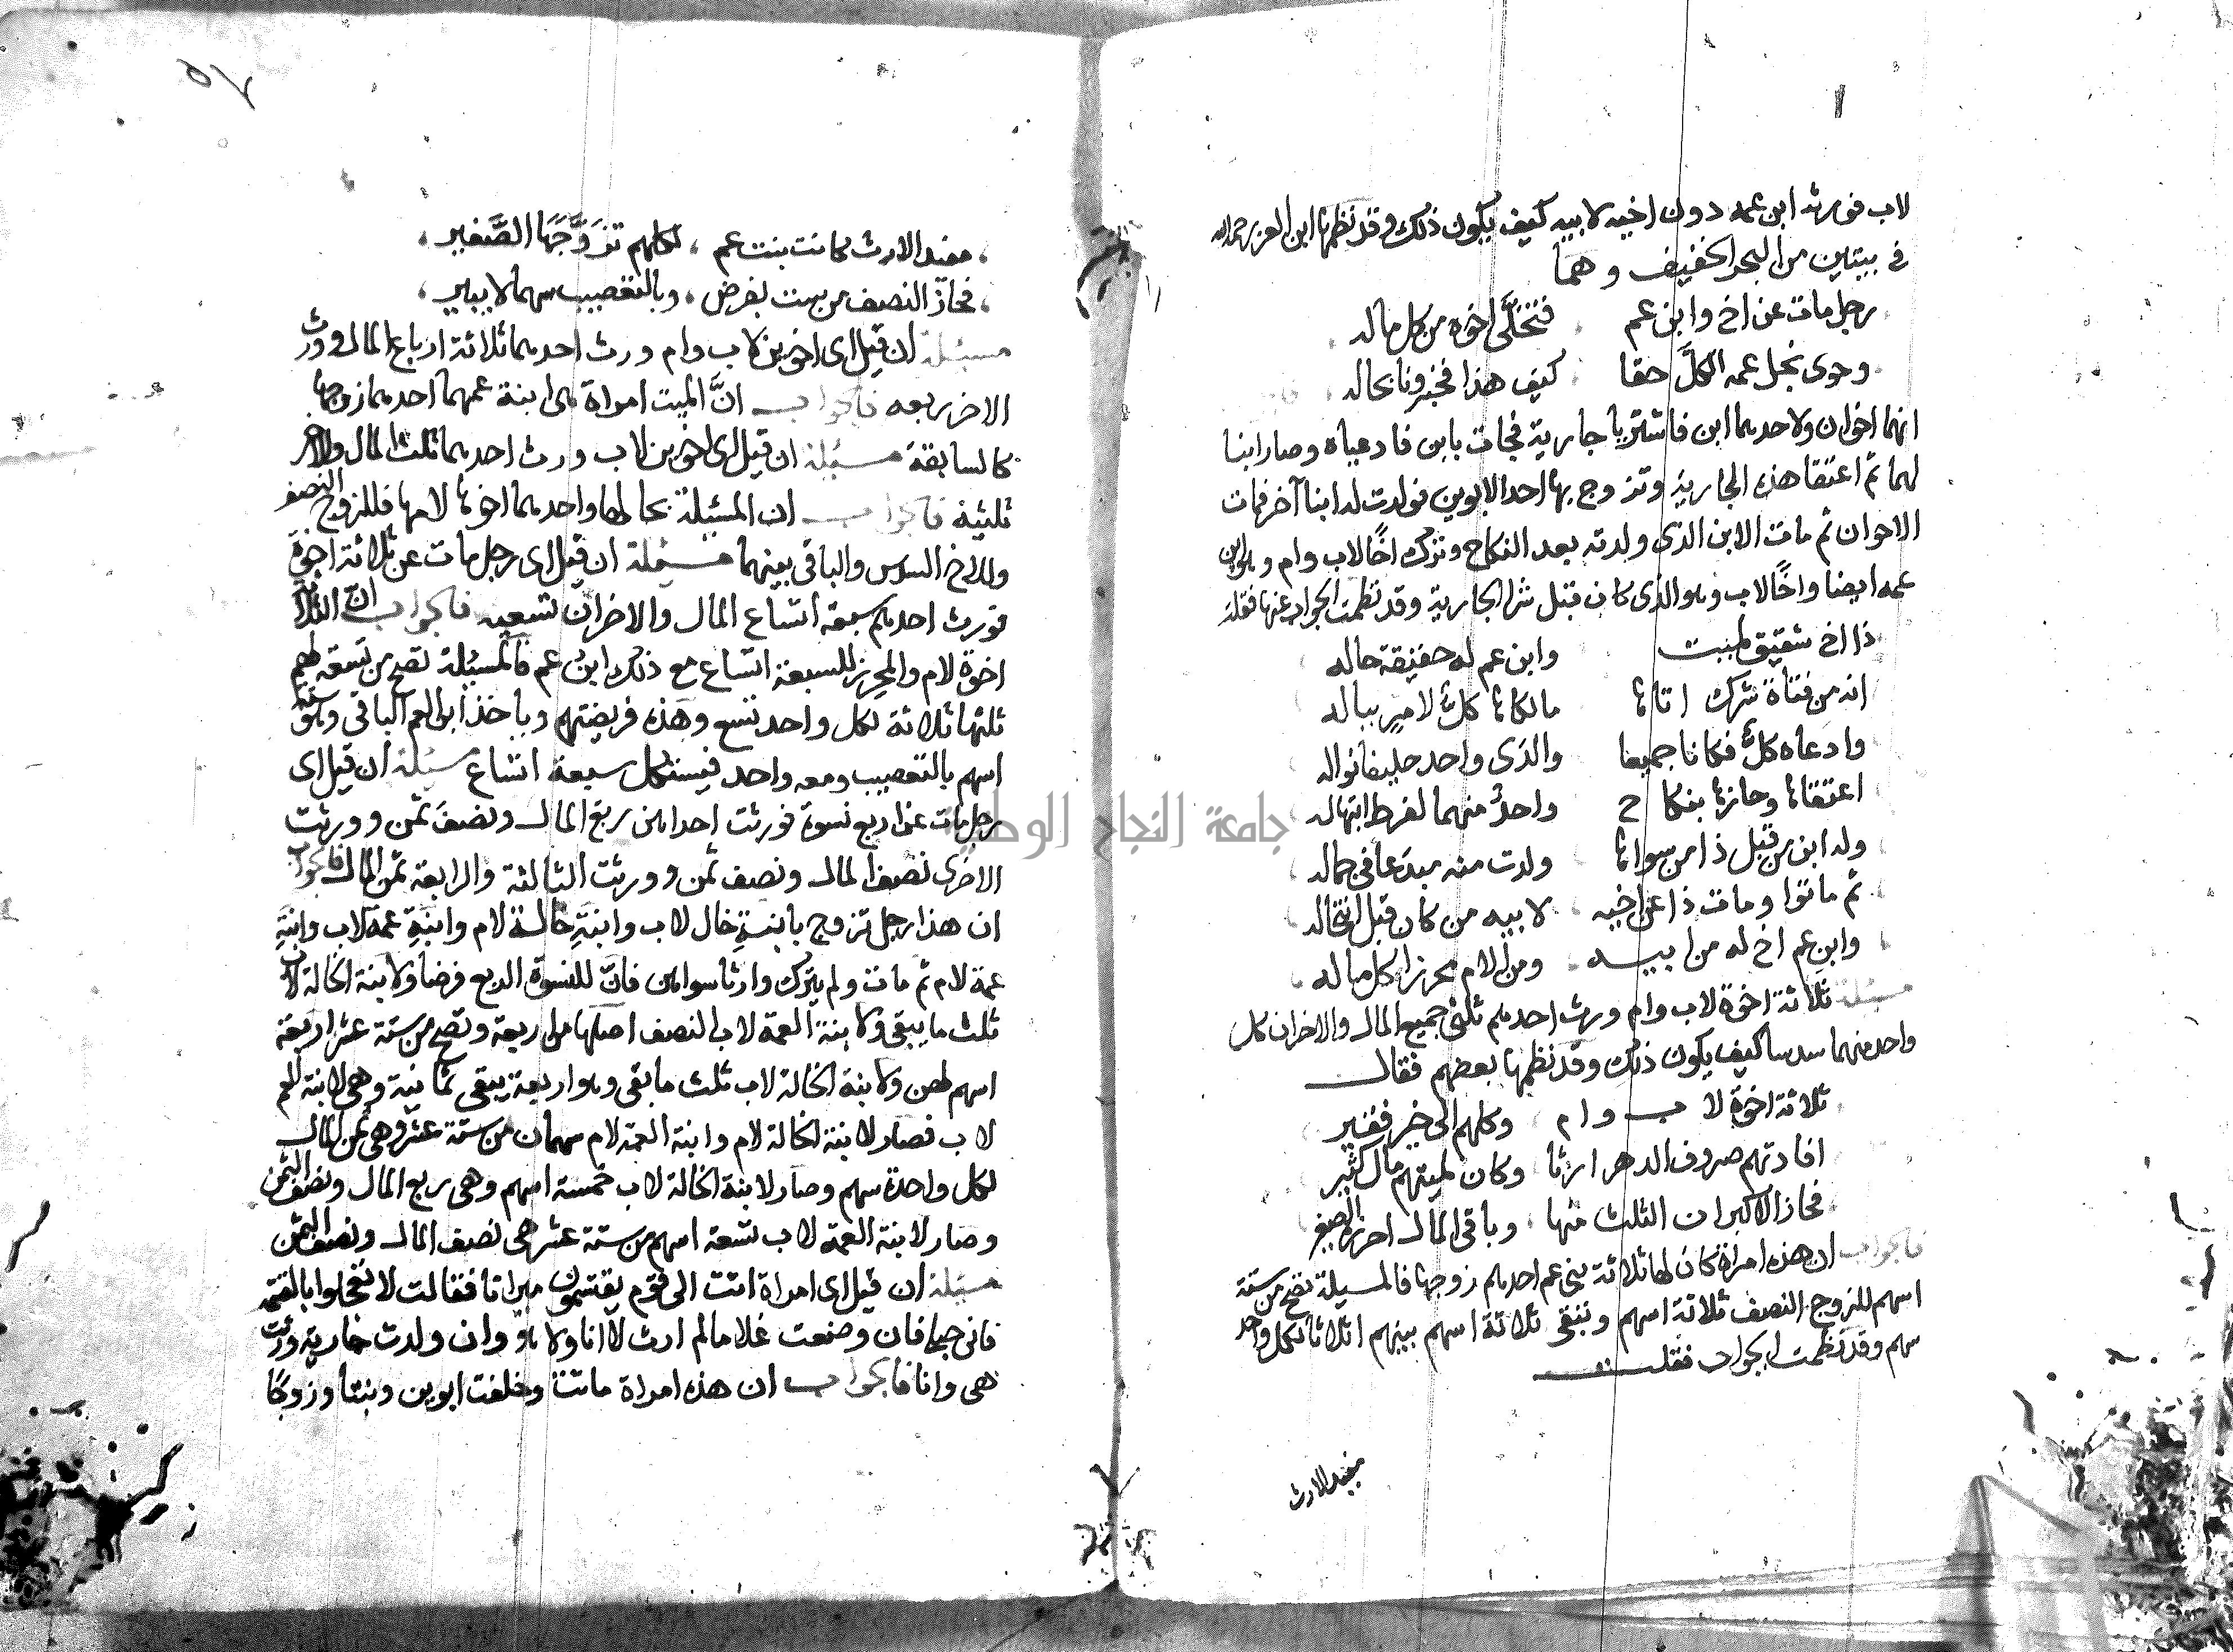 لاب فورثه ابن عمه دون اخيه لابيه كيف يكون ذلك وقد نظمها ابن العز رحمه الله
في بيتين من البحر الخفيف وهما
رجل مات عن اخ وابن عم فتخلَّى اخوه من كل ماله
وحوى نجل عمه الكلَّ حقا كيف هذا فخبرونا بحاله
انهما اخوان ولاحدهما ابن فاشتريا جارية فجات بابن فادعياه وصار ابنا
لهما ثم اعتقا هذه الجارية وتزوج بها احد الابوين فولدت له ابنا آخر فمات
الاخوان ثم مات الابن الذى ولدته بعد النكاح وترك اخًا لاب وام وهو ابن
عمه ايضا واخًا لاب وهو الذى كان قبل شرا الجارية وقد نظمت الجواب عنها فقلت
ذا اخ شقيق لميت وابن عم له حقيقة حاله
انه من فتاة شرك اتاها مالكاها كلٌ لامرٍ بباله
وادعاه كلٌّ فكانا جميعا والدى واحد حليفا نواله
اعتقاها وحازها بنكاح واحدٌ منهما لفرط ابتهاله
وله ابن من قبل ذا من سواها ولدت منه مبدعا في جماله
ثم ماتوا ومات ذا عن اخيه لابيه من كان قبل انتحاله
وابن عم اخ له من ابيه ومن الام محرزا كل ماله
مسئلة ثلاثة اخوة لاب وام ورث احدهم ثلثى جميع المال والاخران كل
واحد منهما سدسا كيف يكون ذلك وقد نظمها بعضهم فقال
ثلاثة اخوة لاب وام وكلهم الى خير فقير
افادتهم صروف الدهر ارثا وكان لميتهم مال كثير
فحاز الاكبران الثلث منها وباقى المال احرزه الصغير
فالجواب ان هذه امراة كان لها ثلاثة بنى عم احدهم زوجها فالمسيلة تصح من ستة
اسهم للزوج النصف ثلاثة اسهم وتبقى ثلاثة اسهم بينهم اثلاثا لكل واحد
سهم وقد نظمت الجواب فقلت
مفيد الارث
مفيد الارث كانت بنت عم لكلهم تزوَّجَها الصَّغير
فحاز النصف من بنت بفرض وبالتعصيب سهما لا
مسئلة ان قيل اى اخوين لاب وام ورث احدهما ثلاثة ارباع المال وورث
الاخر ربعه فالجواب انَّ الميت امراة هى ابنة عمهما احدهما زوجها
كالسابقة مسئلة ان قيل اى اخوين لاب ورث احدهما ثلث المال والاخر
ثلثيه فالجواب ان المسئلة بحالها واحدهما اخوها لامها فللزوج النصف
وللاخ السدس والباقى بينهما مسئلة ان قيل اى رجل مات عن ثلاثة اخوة
فورث احدهم سبعة اتساع المال والاخران تسعيه فالجواب انّ الثلاثة
اخوة لام والمحرز للسبعة اتساع مع ذلك ابن عم فالمسئلة تصح من تسعة لهم
ثلثها ثلاثة لكل واحد تسع وهذه فريضتهم وياخذ ابن العم الباقى وهو ستة
اسهم بالتعصيب ومعه واحد فيستكمل سبعة اتساع مسئلة ان قيل اى
رجل مات عن اربع نسوة فورثت احداهن ربع المال ونصف ثمن وورثت
الاخرى نصف المال ونصف ثمن وورثت الثالثة والرابعة ثمن المال فالجواب
ان هذا رجل تزوج بابنة خال لاب وابنةِ خالة لام وابنةِ عمة لاب وابنةِ
عمة لام ثم مات ولم يترك وارثا سواهن فانّ للنسوة الربع فرضا ولابنة الخالة لاب
ثلث ما يبقى ولابنة العمة لاب النصف اصلها من اربعة وتصح من ستة عشر اربعة
اسهم لهن ولابنة الخالة لاب ثلث ما بقى وهو اربعة يبقى ثمانية وهى لابنة العم
لاب فصار لابنة الخالة لام وابنة العمة لام سهمان من ستة عشر وهى ثمن المال
لكل واحدة سهم وصار لابنة الخالة لاب خمسة اسهم وهى ربع المال ونصف الثمن
وصار لابنة العمة لاب تسعة اسهم من ستة عشر هى نصف المال ونصف الثمن
مسئلة ان قيل اى امراة اتت الى قوم يقتسمون ميراثا فقالت لا تعجلوا بالقسمة
فانى حبلى فان وضعت غلاما لم ارث لا انا ولا هو وان ولدت جارية ورثت
هى وانا فالجواب ان هذه امراة ماتت وخلفت ابوين وبنتا وزوجًا
جامعة النجاح الوطنية